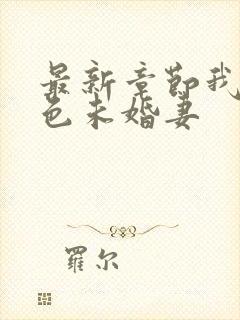 最新章节我
色未婚妻
罗尔